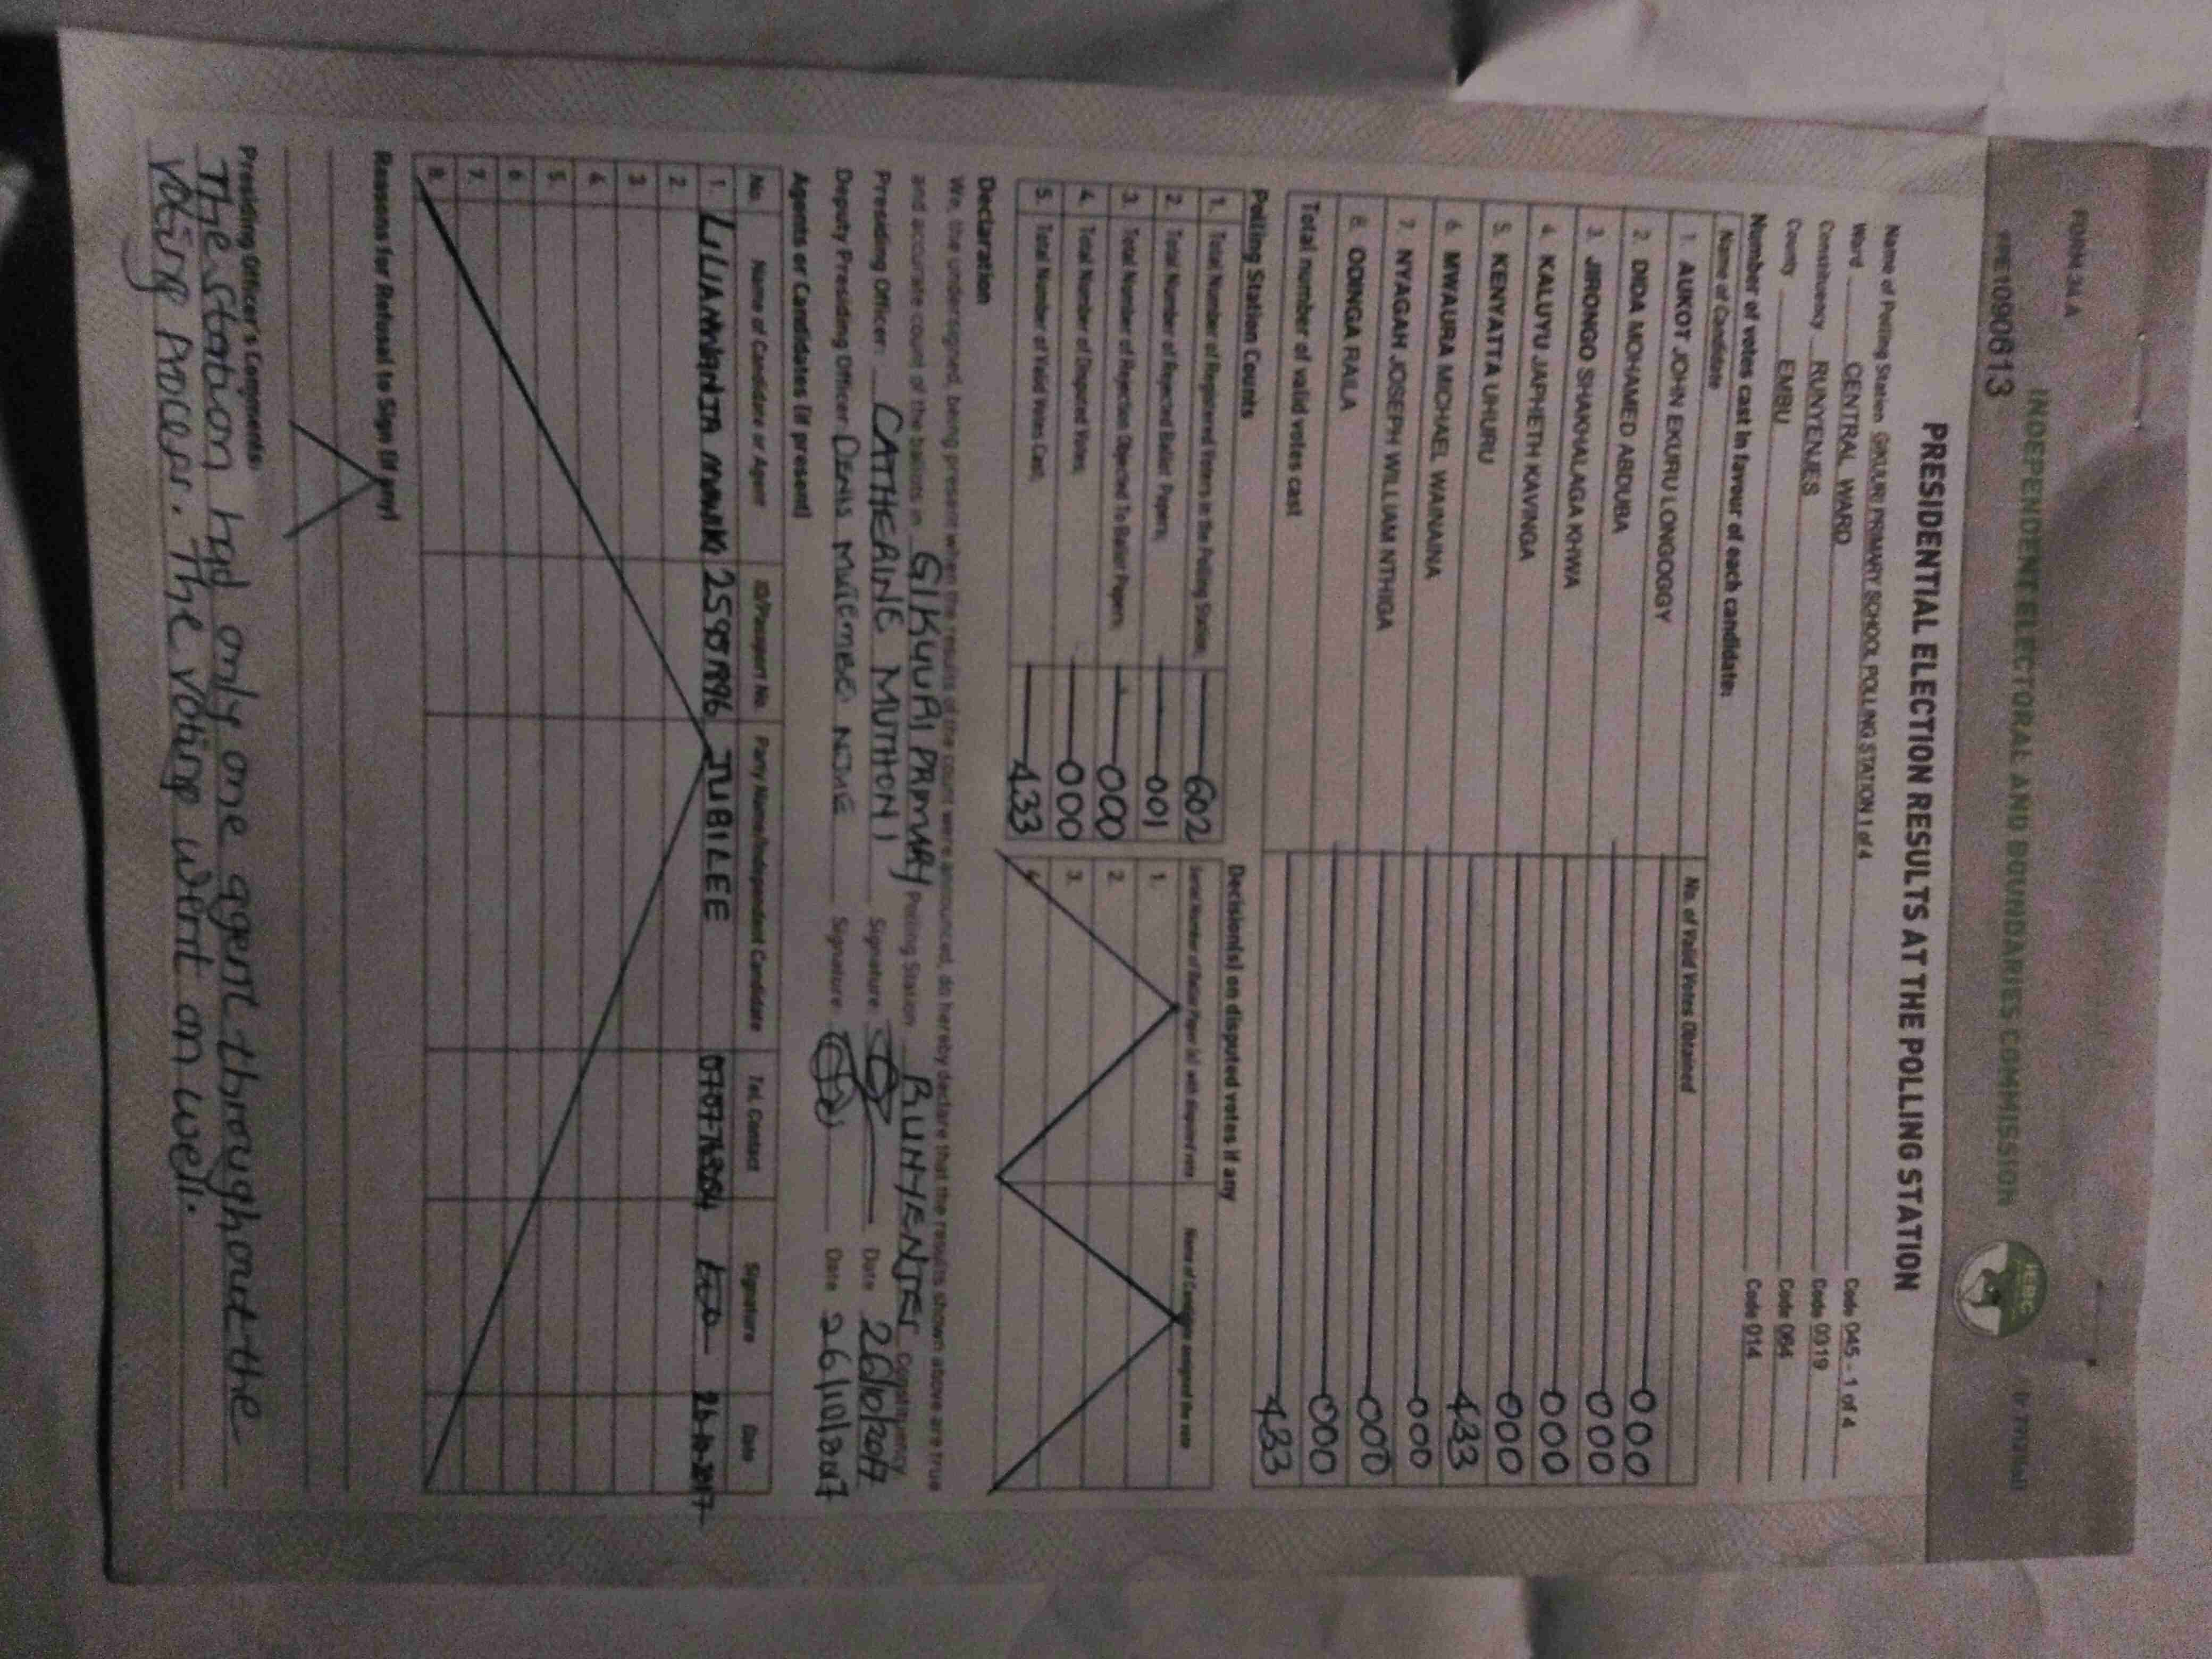 FORM 34 A
INDEPENDENT ELECTORAL AND BOUNDARIES COMMISSION
IEBC
PRESIDENTIAL ELECTION RESULTS AT THE POLLING STATION
Name of Polling Station GIKUURI PRIMARY SCHOOL POLLING STATION 1 of 4 Code 045 - 1 of 4
Ward CENTRAL WARD Code 0319
Constituency RUNYENJES Code 064
County EMBU Code 014
Number of votes cast in favour of each candidate:
Name of Candidate No. of Valid Votes Obtained
1. AUKOT JOHN EKURU LONGOGGY 000
2. DIDA MOHAMED ABDUBA 000
3. JIRONGO SHAKHALAGA KHWA 000
4. KALUYU JAPHETH KAVINGA 000
5. KENYATTA UHURU 433
6. MWAURA MICHAEL WAINAINA 000
7. NYAGAH JOSEPH WILLIAM NTHIGA 000
8. ODINGA RAILA 000
Total number of valid votes cast 433
Polling Station Counts
1. Total Number of Registered Voters in the Polling Station 602
2. Total Number of Rejected Ballot Papers 001
3. Total Number of Rejection Objected To Ballot Papers 000
4. Total Number of Disputed Votes 000
5. Total Number of Valid Votes Cast 433
Decision(s) on disputed votes if any
Serial Number of Ballot Paper (s) with disputed vote Name of Candidate assigned the vote
1.
2.
3.
4.
Declaration
We, the undersigned, being present when the results of the count were announced, do hereby declare that the results shown above are true
and accurate count of the ballots in GIKUURI PRIMARY Polling Station RUNYENJES Constituency
Presiding Officer: CATHERINE MUTHONI Signature Date 26/10/2017
Deputy Presiding Officer: Signature Date 26/10/2017
Agents or Candidates (if present)
No. Name of Candidate or Agent ID/Passport No. Party Name/Independent Candidate Tel. Contact Signature Date
1. JUBILEE 26-10-2017
2.
3.
4.
5.
6.
7.
8.
Reasons for Refusal to Sign (if any)
Presiding Officer's Comments:
The station had only one agent throughout the
voting process. The voting went on well.